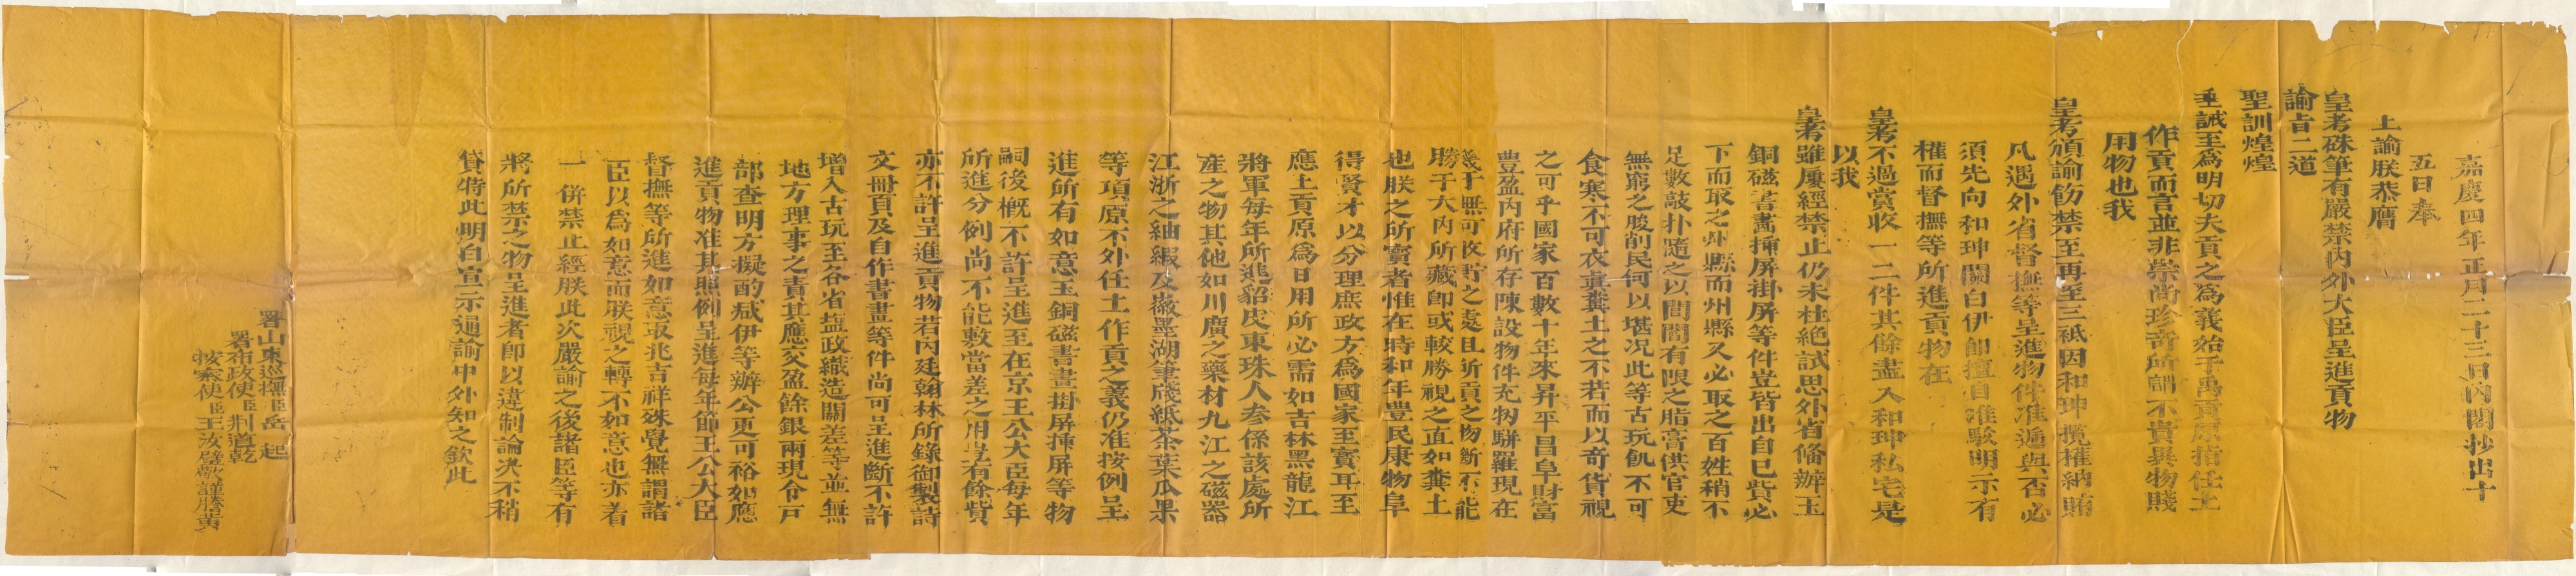 嘉慶四年正月二十三日內閣抄出十
五日奉
上諭朕恭膺
皇考硃筆有嚴禁內外大臣呈進貢物
諭旨二道
聖訓煌煌
垂誡至爲明切夫貢之爲義始于禹貢原指任土
作貢而言並非崇尚珍奇所謂不貴異物賤
用物也我
皇考頒諭飭禁至再至三祗因和珅攬權納賄
凡遇外省督撫等呈進物件准遞與否必
須先向和珅關白伊卽擅自准駁明示有
權而督撫等所進貢物在
皇考不過賞收一二件其餘盡入和珅私宅是
以我
皇考雖屢經禁止仍未杜絶試思外省備辦玉
銅磁書畫揷屏掛屏等件豈皆出自己貲必
下而取之州縣而州縣又必取之百姓稍不
足數敲扑隨之以閭閻有限之脂膏供官吏
無窮之朘削民何以堪况此等古玩飢不可
食寒不可衣眞糞土之不若而以奇貨視
之可乎國家百數十年來昇平昌阜財富
豊盈內府所存陳設物件充牣駢羅現在
幾于無可收貯之處且所貢之物斷不能
勝于大內所藏卽或較勝視之直如糞土
也朕之所寳者惟在時和年豊民康物阜
得賢才以分理庶政方爲國家至寳耳至
應上貢原爲日用所必需如吉林黑龍江
將軍每年所進貂皮東珠人参係該處所
產之物其他如川廣之藥材九江之磁器
江浙之紬緞及徽墨湖筆牋紙茶葉瓜果
等項原不外任土作貢之義仍准按例呈
進所有如意玉銅磁書畫掛屏揷屏等物
嗣後槪不許呈進至在京王公大臣每年
所進分例尚不能敷當差之用豈有餘貲
亦不許呈進貢物若內廷翰林所錄御製詩
文冊頁及自作書畫等件尚可呈進斷不許
增入古玩至各省塩政織造關差等並無
地方理事之責其應交盈餘銀兩現令戸
部查明方擬酌減伊等辦公更可裕如應
進貢物准其照例呈進每年節王公大臣
督撫等所進如意取兆吉祥殊覺無謂諸
臣以爲如意而朕視之轉不如意也亦着
一併禁止經朕此次嚴諭之後諸臣等有
將所禁之物呈進者卽以違制論決不稍
貸特此明白宣示通諭中外知之欽此
署山東巡撫臣岳起
署布政使臣荆道乾
按察使臣王汝璧敬謹謄黃